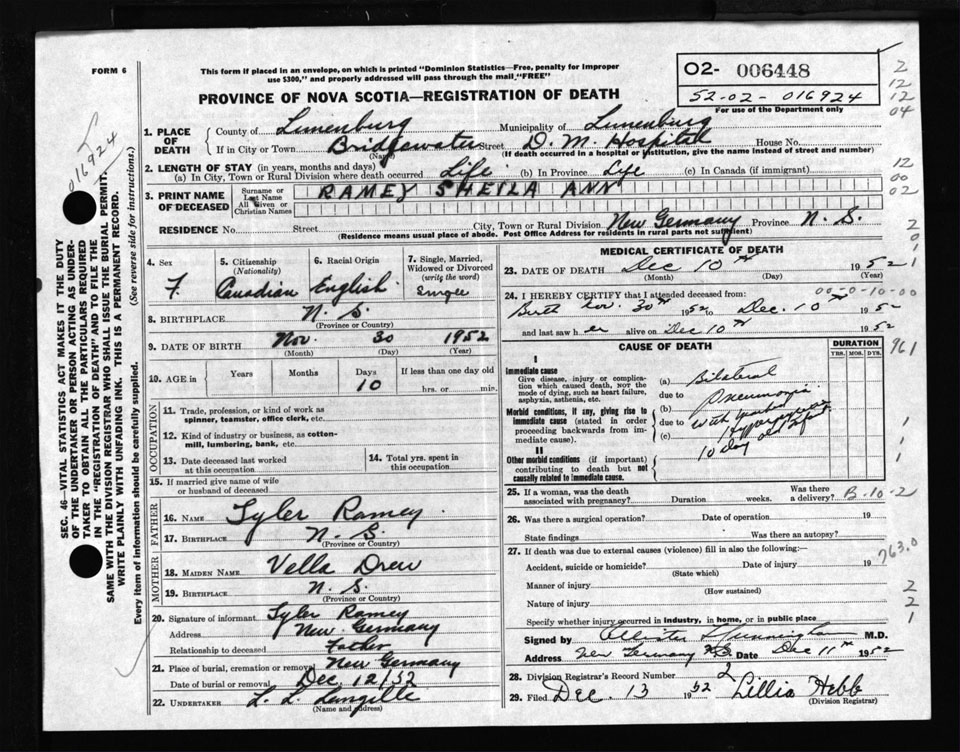 FORM 6
This form if placed in an envelope, on which is printed "Dominion Statistics—Free, penalty for improper
use $300," and properly addressed will pass through the mail "FREE"
PROVINCE OF NOVA SCOTIA—REGISTRATION OF DEATH
02- 006448
52-02-016924
For use of the Department only
2
12
12
04
12
00
02
016924
SEC. 46—VITAL STATISTICS ACT MAKES IT THE DUTY
OF THE UNDERTAKER OR PERSON ACTING AS UNDER-
TAKER TO OBTAIN ALL THE PARTICULARS REQUIRED
IN THE "REGISTRATION OF DEATH" AND TO FILE THE
SAME WITH THE DIVISION REGISTRAR WHO SHALL ISSUE THE BURIAL PERMIT.
WRITE PLAINLY WITH UNFADING INK. THIS IS A PERMANENT RECORD.
Every item of information should be carefully supplied. (See reverse side for instructions.)
1. PLACE OF DEATH
County of Lunenburg Municipality of Lunenburg
If in City or Town Bridgewater Street D. M. Hospital House No.
(Name) (If death occurred in a hospital or institution, give the name instead of street and number)
2. LENGTH OF STAY (in years, months and days)
(a) In City, Town or Rural Division where death occurred Life (b) In Province Life (c) In Canada (if immigrant)
3. PRINT NAME OF DECEASED
Surname or Last Name RAMEY SHEILA ANN
All Given or Christian Names
RESIDENCE No. Street City, Town or Rural Division New Germany Province N. S.
(Residence means usual place of abode. Post Office Address for residents in rural parts not sufficient)
4. Sex F.
5. Citizenship (Nationality) Canadian
6. Racial Origin English
7. Single, Married, Widowed or Divorced (write the word) Single
8. BIRTHPLACE N. S.
(Province or Country)
9. DATE OF BIRTH Nov. 30 1952
(Month) (Day) (Year)
10. AGE in Years Months Days 10
If less than one day old
hrs. or min.
OCCUPATION
11. Trade, profession, or kind of work as
spinner, teamster, office clerk, etc.
12. Kind of industry or business, as cotton-
mill, lumbering, bank, etc.
13. Date deceased last worked
at this occupation
14. Total yrs. spent in
this occupation
15. If married give name of wife
or husband of deceased
FATHER
16. NAME Tyler Ramey
17. BIRTHPLACE N. S.
(Province or Country)
MOTHER
18. MAIDEN NAME Vella Drew
19. BIRTHPLACE N. S.
(Province or Country)
20. Signature of informant Tyler Ramey
Address New Germany
Relationship to deceased Father
21. Place of burial, cremation or removal New Germany
Date of burial or removal Dec. 12/52
22. UNDERTAKER L. L. Langille
(Name and address)
MEDICAL CERTIFICATE OF DEATH
23. DATE OF DEATH Dec 10th 1952
(Month) (Day)
00-0-10-00
24. I HEREBY CERTIFY that I attended deceased from:
Birth Nov. 30th 1952 to Dec. 10th 1952
and last saw her alive on Dec 10th 1952
CAUSE OF DEATH
DURATION
YRS. MOS. DYS.
961
I
Immediate cause
Give disease, injury or complica-
tion which caused death, not the
mode of dying, such as heart failure,
asphyxia, asthenia, etc.
Morbid conditions, if any, giving rise to
immediate cause (stated in order
proceeding backwards from im-
mediate cause).
II
Other morbid conditions (if important)
contributing to death but not
causally related to immediate cause.
(a) Bilateral
due to Pneumonia
(b)
due to with
(c)
10 day old Infant
25. If a woman, was the death
associated with pregnancy? Duration weeks. Was there a delivery? B-10-2
26. Was there a surgical operation? Date of operation 19
State findings Was there an autopsy?
27. If death was due to external causes (violence) fill in also the following:—
763.0
Accident, suicide or homicide? Date of injury 19
(State which)
Manner of injury
(How sustained)
Nature of injury
Specify whether injury occurred in industry, in home, or in public place
Signed by M.D.
Address New Germany N.S. Date Dec 11th 1952
28. Division Registrar's Record Number 2
29. Filed Dec. 13 1952 Lillia Hebb
(Division Registrar)